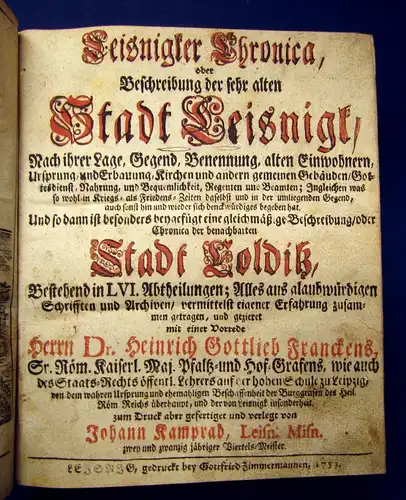 Leisnigker Chronica,
oder
Beschreibung der sehr alten
Stadt Leisnigk,
Nach ihrer Lage, Gegend, Benennung, alten Einwohnern,
Ursprung, und Erbauung, Kirchen und andern gemeinen Gebäuden/ Got-
tesdienst, Nahrung, und Bequemlichkeit, Regenten und Beamten; Ingleichen was
so wohl in Kriegs- als Friedens-Zeiten daselbst und in der umliegenden Gegend,
auch sonst hin und wieder sich denckwürdiges begeben hat.
Und so dann ist besonders beygefügt eine gleichmäßige Beschreibung/oder
Chronica der benachbarten
Stadt Colditz,
Bestehend in LVI. Abtheilungen; Alles aus glaubwürdigen
Schrifften und Archiven, vermittelst eigener Erfahrung zusam-
men getragen, und gezieret
mit einer Vorrede
Herrn Dr. Heinrich Gottlieb Franckens,
Sr. Röm. Kaiserl. Maj. Pfaltz-und Hof-Grafens, wie auch
des Staats-Rechts öffentl. Lehrers auf der hohen Schule zu Leipzig,
von dem wahren Ursprung und ehemahligen Beschaffenheit der Burggrafen des Heil.
Röm Reichs überhaupt, und der von Leisnigk insonderheit.
zum Druck aber gefertiget und verlegt von
Johann Kamprad, Leisn. Misn.
zwey und zwanzig jähriger Viertels-Meister.
LEISNIG, gedruckt bey Gottfried Zimmermannen, 1753.